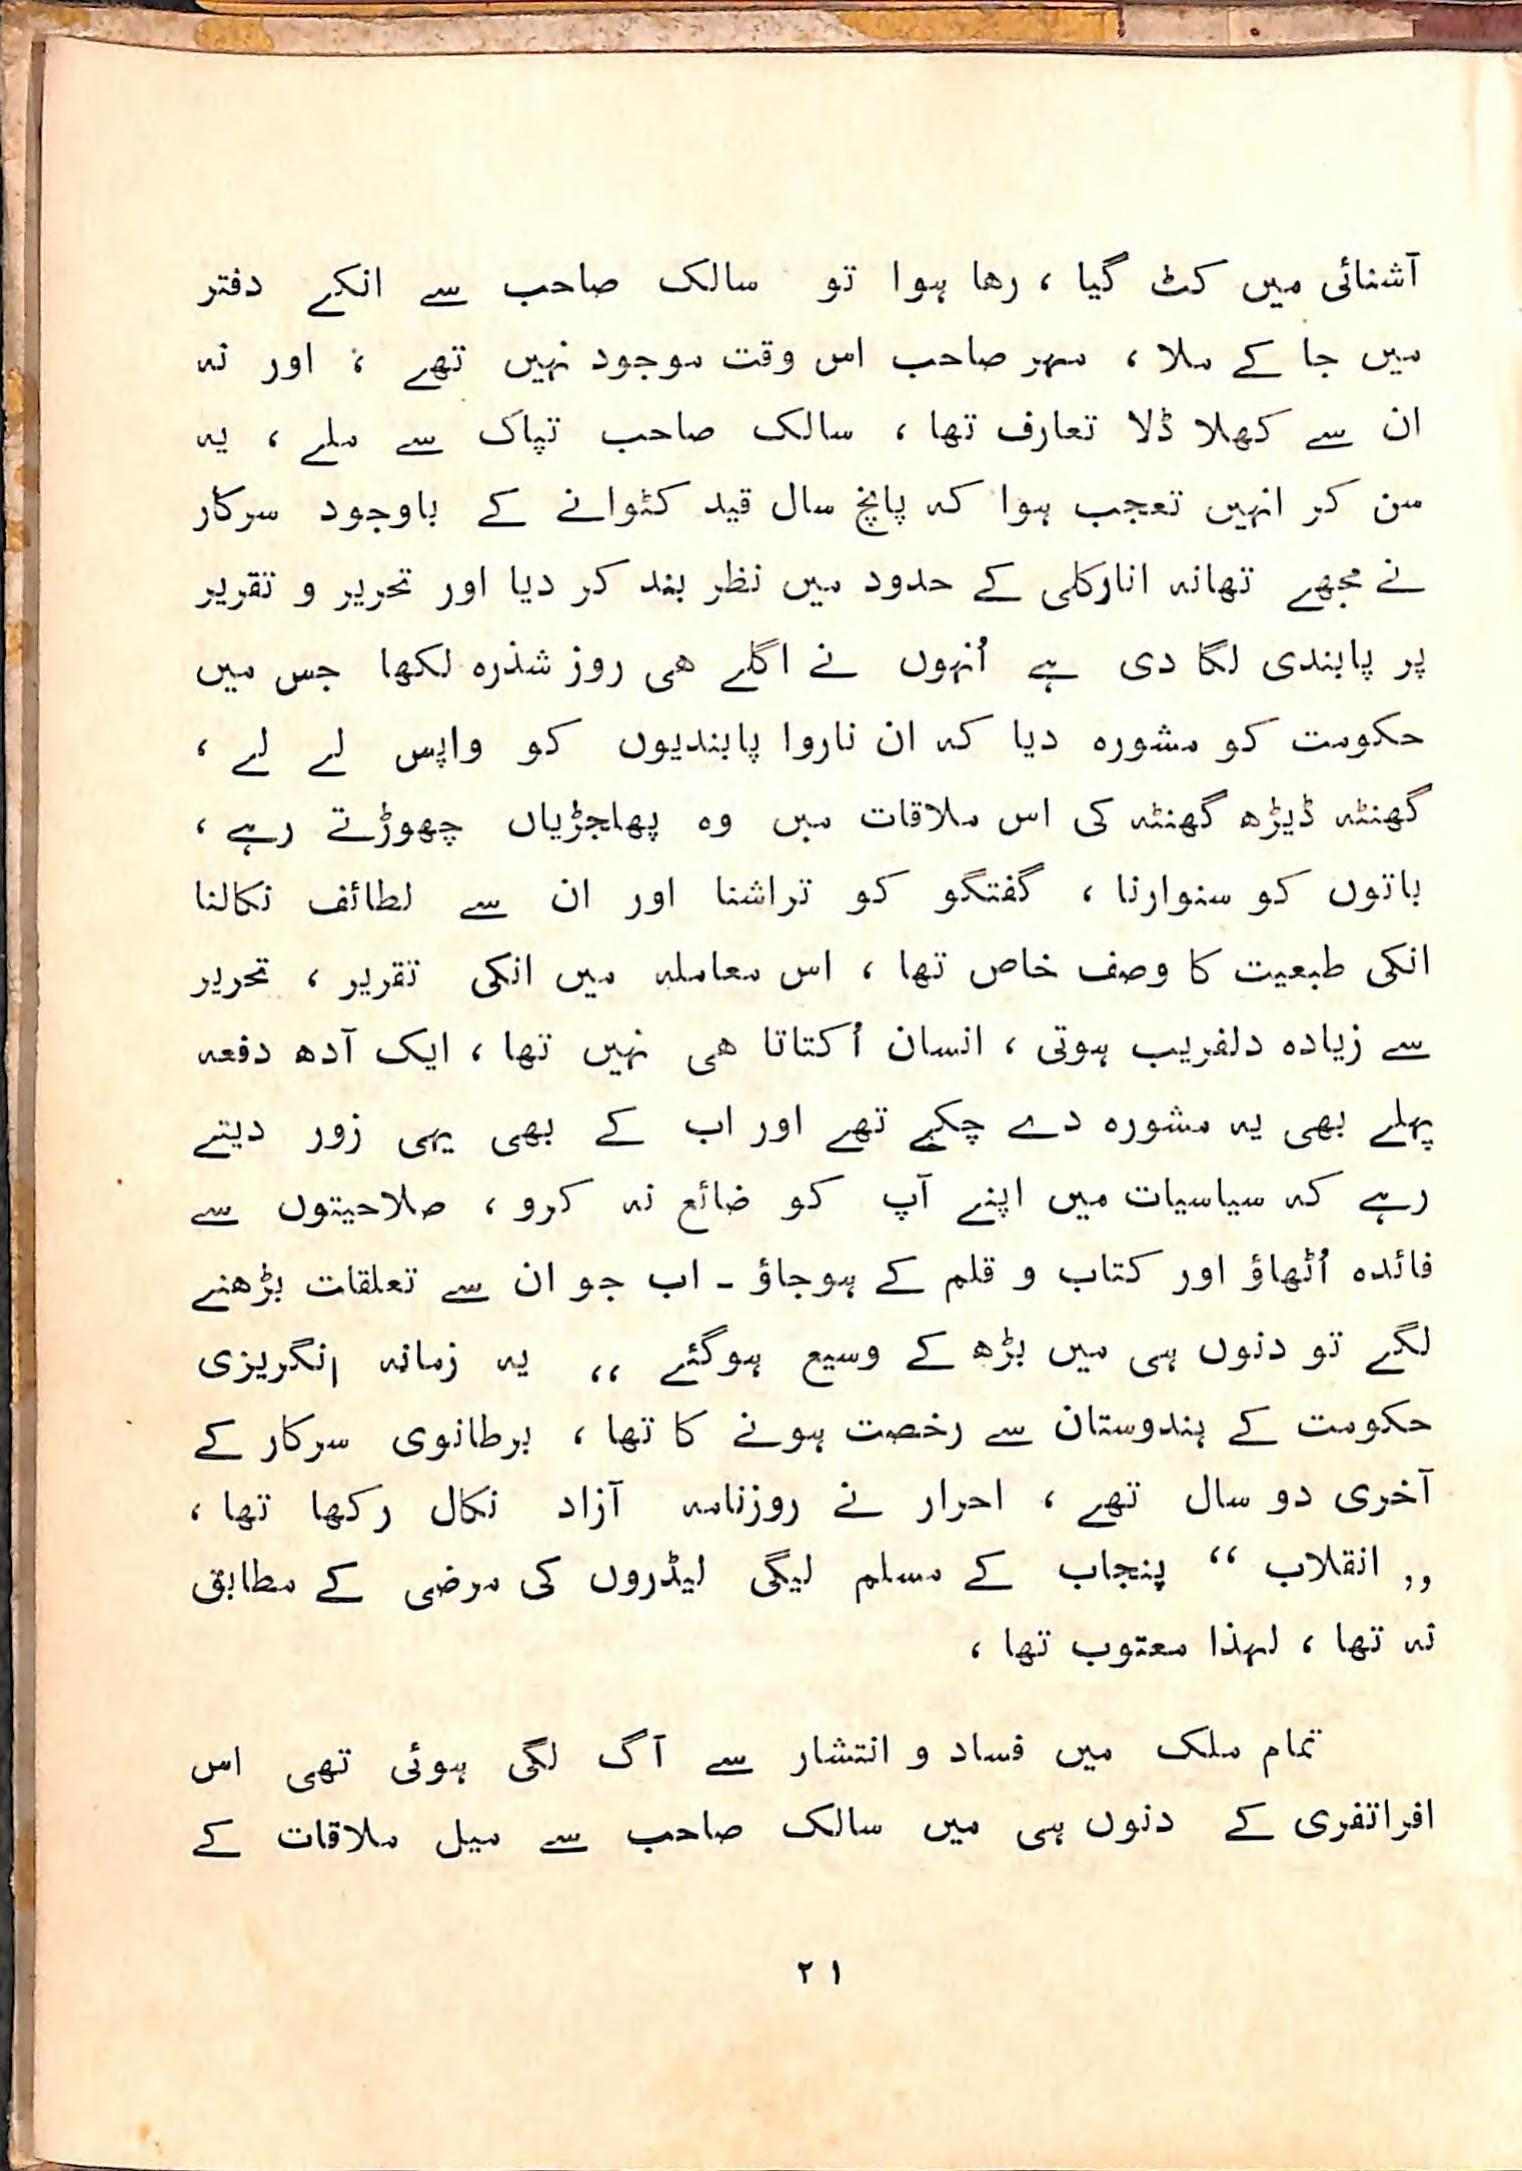 آشنائی میں کٹ گیا ، رھا ہوا تو سالک صاحب سے انکے دفتر
میں جا کے ملا ، مہر صاحب اس وقت موجود نہیں تھے ، اور نہ
ان سے کھلا ڈلا تعارف تھا ، سالک صاحب تپاک سے ملے ، یہ
سن کر انہیں تعجب ہوا کہ پانچ سال قید کٹوانے کے باوجود سرکار
نے مجھے تھانہ انارکلی کے حدود میں نظر بند کر دیا اور تحریر و تقریر
پر پابندی لگا دی ہے اُنہوں نے اگلے ھی روز شذرہ لکھا جس میں
حکومت کو مشورہ دیا کہ ان ناروا پابندیوں کو واپس لے لے ،
گھنٹہ ڈیڑھ گھنٹہ کی اس ملاقات میں وہ پھلجڑیاں چھوڑتے رہے ،
باتوں کو سنوارنا ، گفتگو کو تراشنا اور ان سے لطائف نکالنا
انکی طبعیت کا وصف خاص تھا ، اس معاملہ میں انکی تقریر ، تحریر
سے زیادہ دلفریب ہوتی ، انسان اُکتاتا ھی نہیں تھا ، ایک آدھ دفعہ
پہلے بھی یہ مشورہ دے چکے تھے اور اب کے بھی یہی زور دیتے
رہے کہ سیاسیات میں اپنے آپ کو ضائع نہ کرو ، صلاحیتوں سے
فائدہ اُٹھاؤ اور کتاب و قلم کے ہوجاؤ ۔ اب جو ان سے تعلقات بڑھنے
لگے تو دنوں ہی میں بڑھ کے وسیع ہوگئے ،، یہ زمانہ انگریزی
حکومت کے ہندوستان سے رخصت ہونے کا تھا ، برطانوی سرکار کے
آخری دو سال تھے ، احرار نے روزنامہ آزاد نکال رکھا تھا ،
,, انقلاب “ پنجاب کے مسلم لیگی لیڈروں کی مرضی کے مطابق
نہ تھا ، لہذا معتوب تھا ،
تمام ملک میں فساد و انتشار سے آگ لگی ہوئی تھی اس
افراتفری کے دنوں ہی میں سالک صاحب سے میل ملاقات کے
۲۱